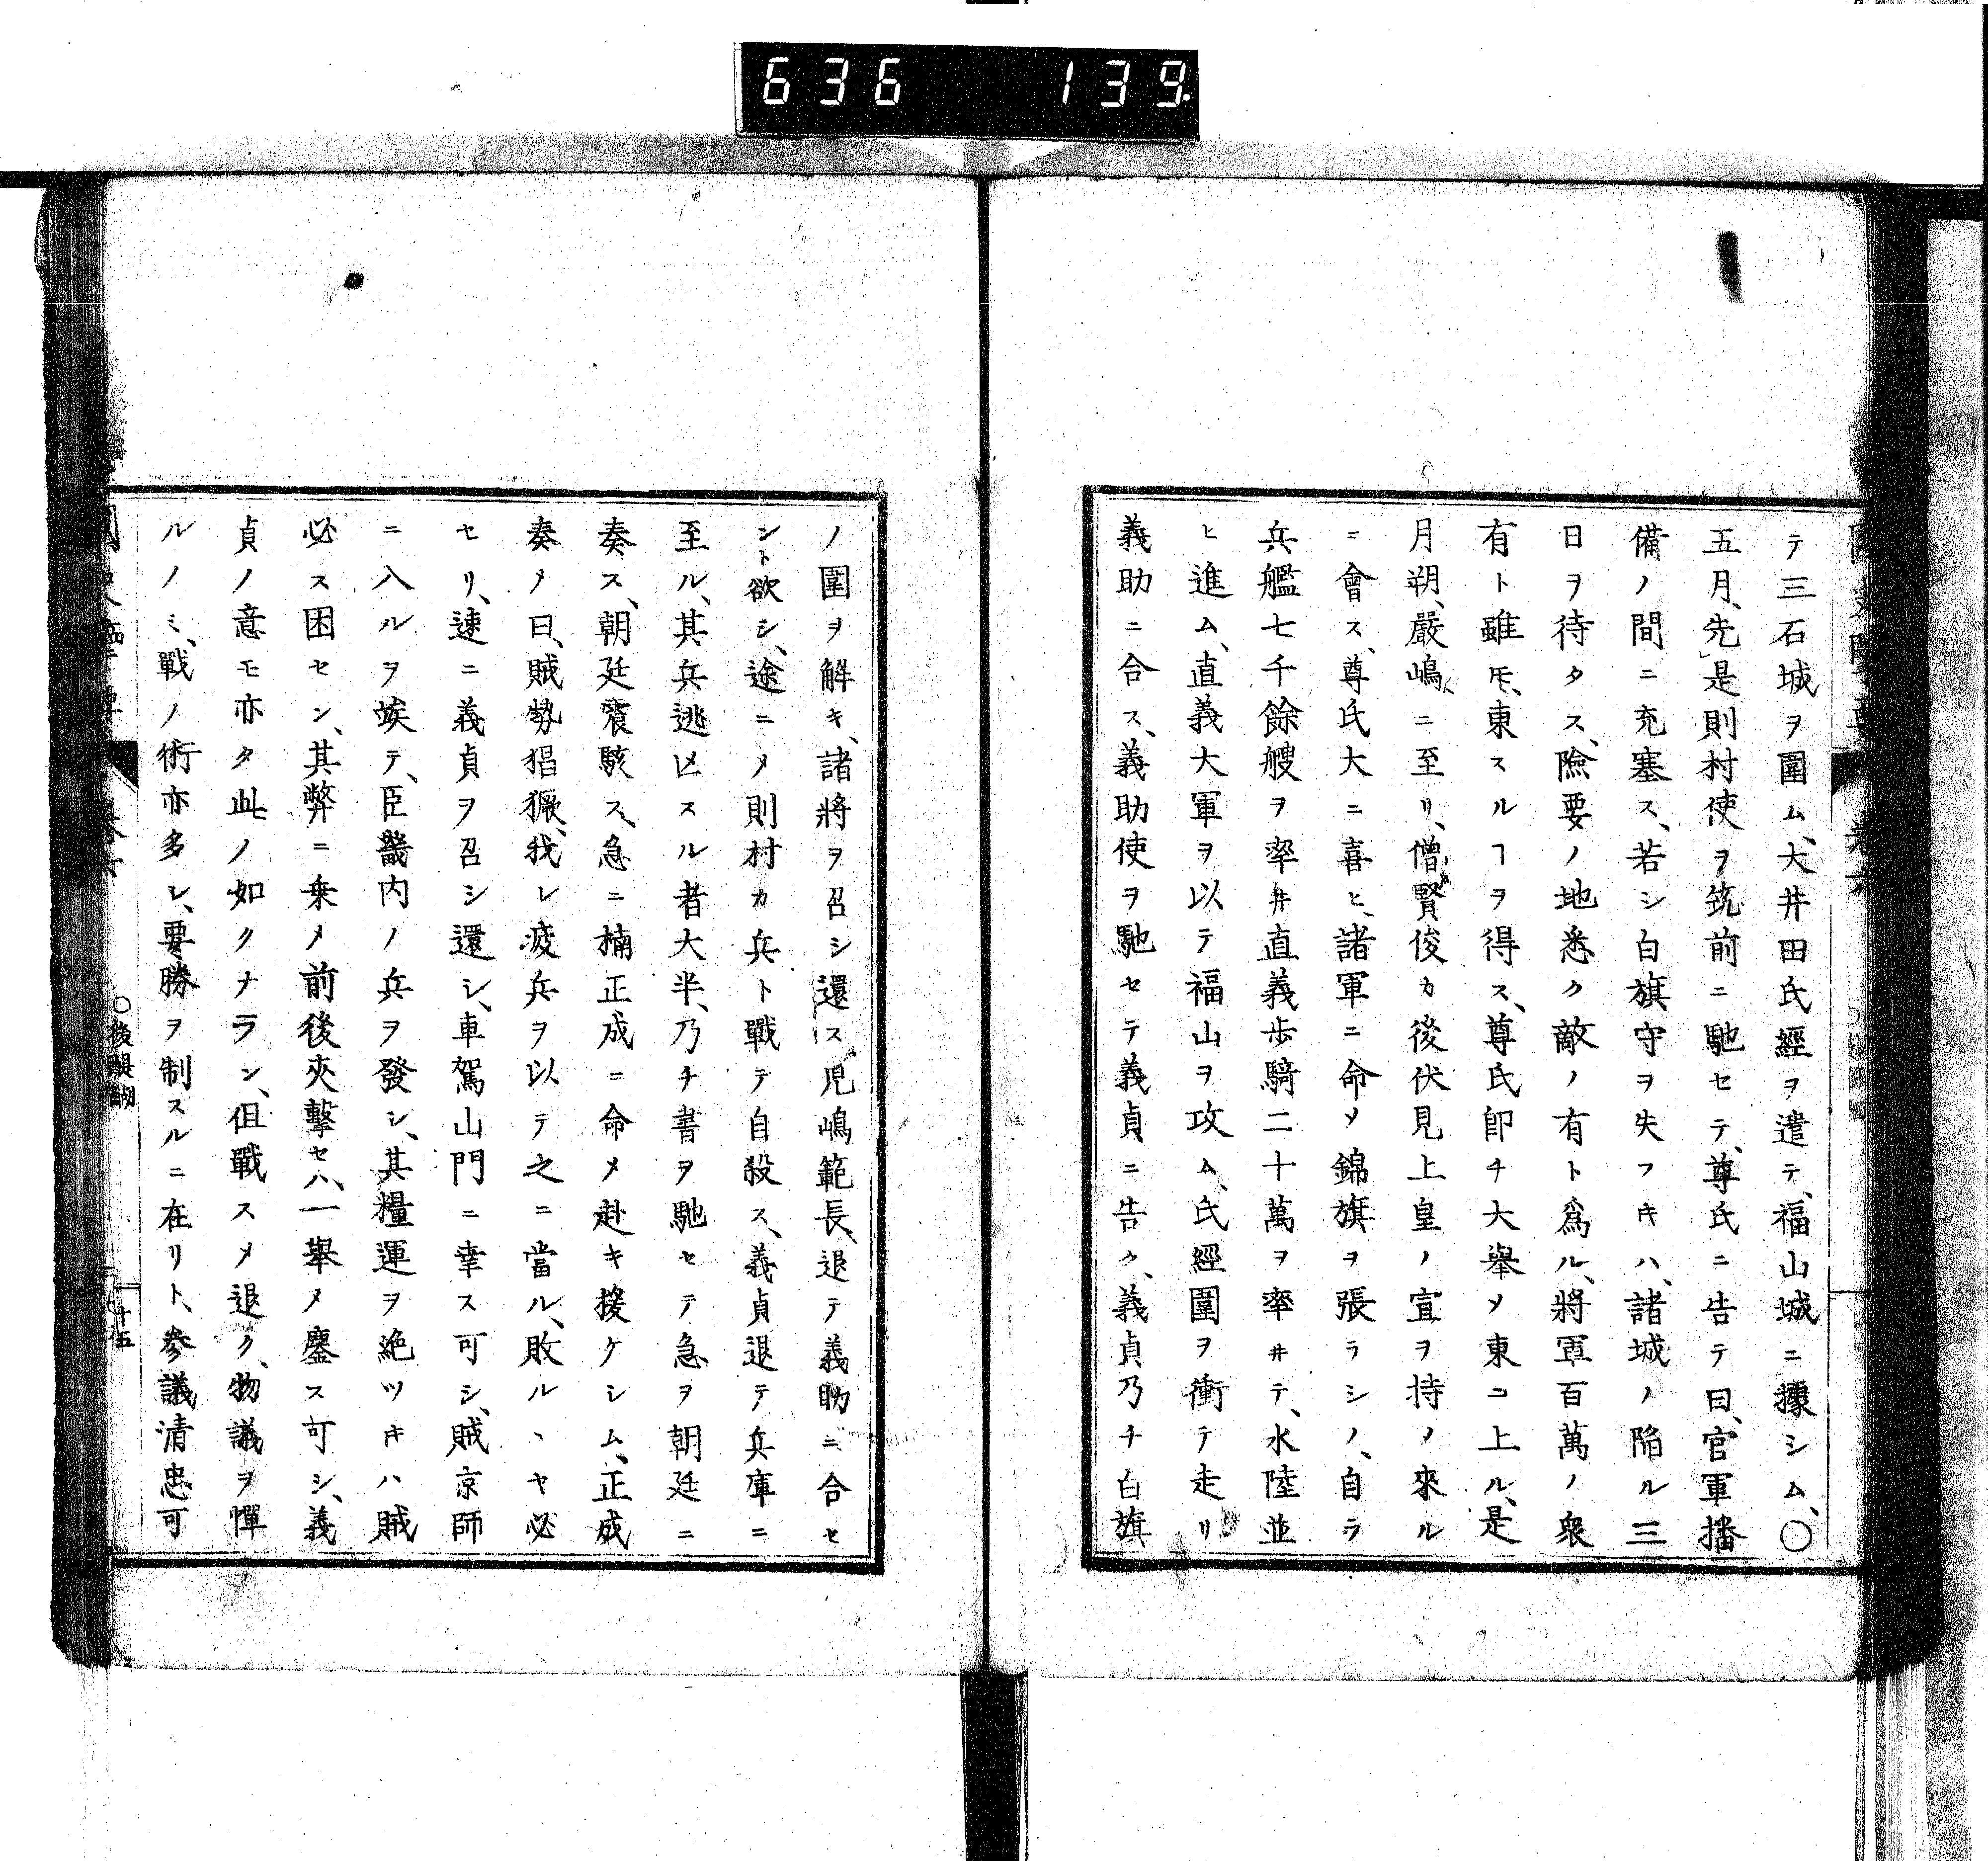 636 139
テ三石城ヲ圍ム、大井田氏經ヲ遣テ、福山城ニ據シム、〇
五月、先是則村使ヲ筑前ニ馳セテ、尊氏ニ告テ曰、官軍播
備ノ間ニ充塞ス、若シ白旗守ヲ失フキハ、諸城ノ陷ル三
日ヲ待タス、險要ノ地悉ク敵ノ有ト爲ル、將軍百萬ノ衆
有ト雖𪜈、東スルヿヲ得ス、尊氏卽チ大擧ノ東ニ上ル、是
月朔、嚴嶋ニ至リ、僧賢俊カ後伏見上皇ノ宣ヲ持ノ來ル
ニ會ス、尊氏大ニ喜ヒ、諸軍ニ命ノ錦旗ヲ張ラシノ、自ラ
兵艦七千餘艘ヲ率井直義歩騎二十萬ヲ率井テ、水陸並
ヒ進ム、直義大軍ヲ以テ福山ヲ攻ム、氏經圍ヲ衝テ走リ
義助ニ合ス、義助使ヲ馳セテ義貞ニ告ク、義貞乃チ白旗
ノ圍ヲ解キ、諸將ヲ召シ還ス、児嶋範長、退テ義助ニ合セ
ント欲シ、途ニメ則村カ兵ト戰テ自殺ス、義貞退テ兵庫ニ
至ル、其兵逃亾スル者大半、乃チ書ヲ馳セテ急ヲ朝廷ニ
奏ス、朝廷震駭ス、急ニ楠正成ニ命メ赴キ援ケシム、正成
奏メ曰、賊勢猖獗、我レ疲兵ヲ以テ之ニ當ル、敗ルヽヤ必
セリ、速ニ義貞ヲ召シ還シ、車駕山門ニ幸ス可シ、賊京師
ニ入ルヲ竢テ、臣畿内ノ兵ヲ發シ、其糧運ヲ絶ツキハ賊
必ス困セン、其弊ニ乗メ前後夾撃セハ、一擧メ鏖ス可シ、義
貞ノ意モ亦タ此ノ如クナラン、但戰スメ退ク、物議ヲ憚
ルノミ、戰ノ術亦多シ、要勝ヲ制スルニ在リト、參議清忠可
〇後醍醐
十五